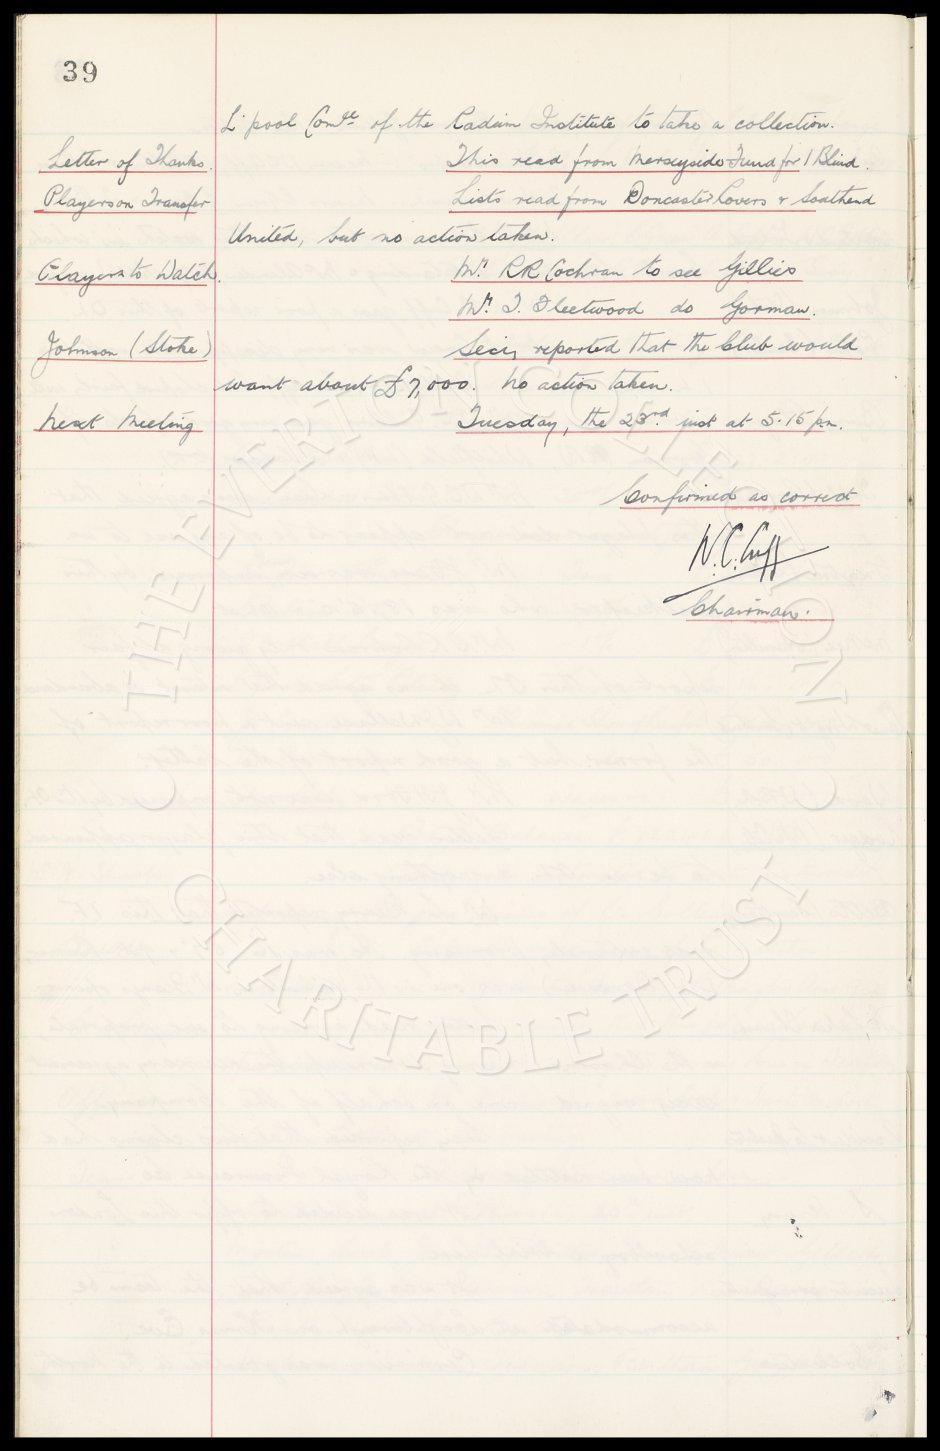 39
L'pool Comtee of the Radium Institute to take a collection.
Letter of Thanks. This read from Merseyside Fund for / Blind.
Players on Transfer Lists read from Doncaster Rovers & Southend
United, but no action taken.
Players to Watch. Mr. R R Cochran to see Gillies
Mr. T. Fleetwood do Gorman.
Johnson (Stoke) Secy reported that the Club would
want about £7,000. No action taken.
Next Meeting Tuesday, the 23rd. inst at 5.15 pm.
Confirmed as correct
W.C. Cuff
Chairman.
© THE EVERTON COLLECTION ©
CHARITABLE TRUST